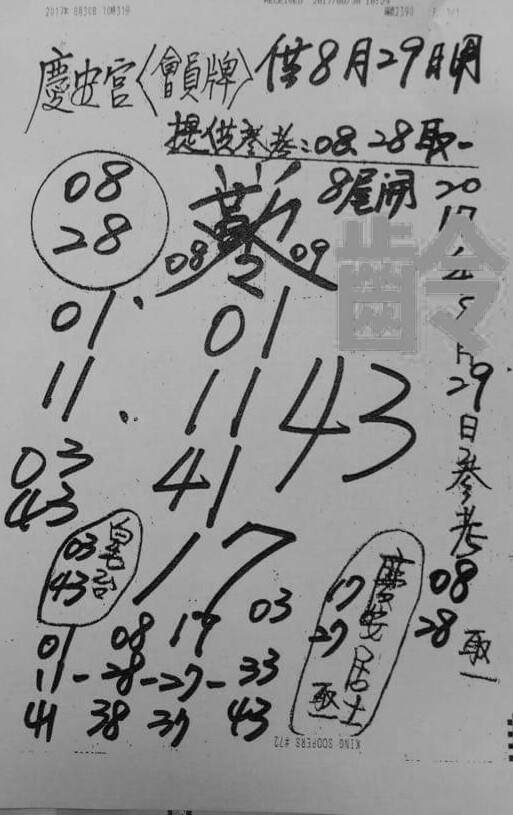 2017年 08月30日 10時31分
RECEIVED 2017/08/30 10:29
慶安宮〈會員牌〉供8月29日開
提供參考:08、28取一
8尾開
08
28
08 09
01 01
11 11
43
41
03
43
17
03
43
01 08 17 03
11-28-27-33
41 38 37 43
17
27
慶安居士
取一
29日參考
08
28
取一
齡
KING SOOPERS #72